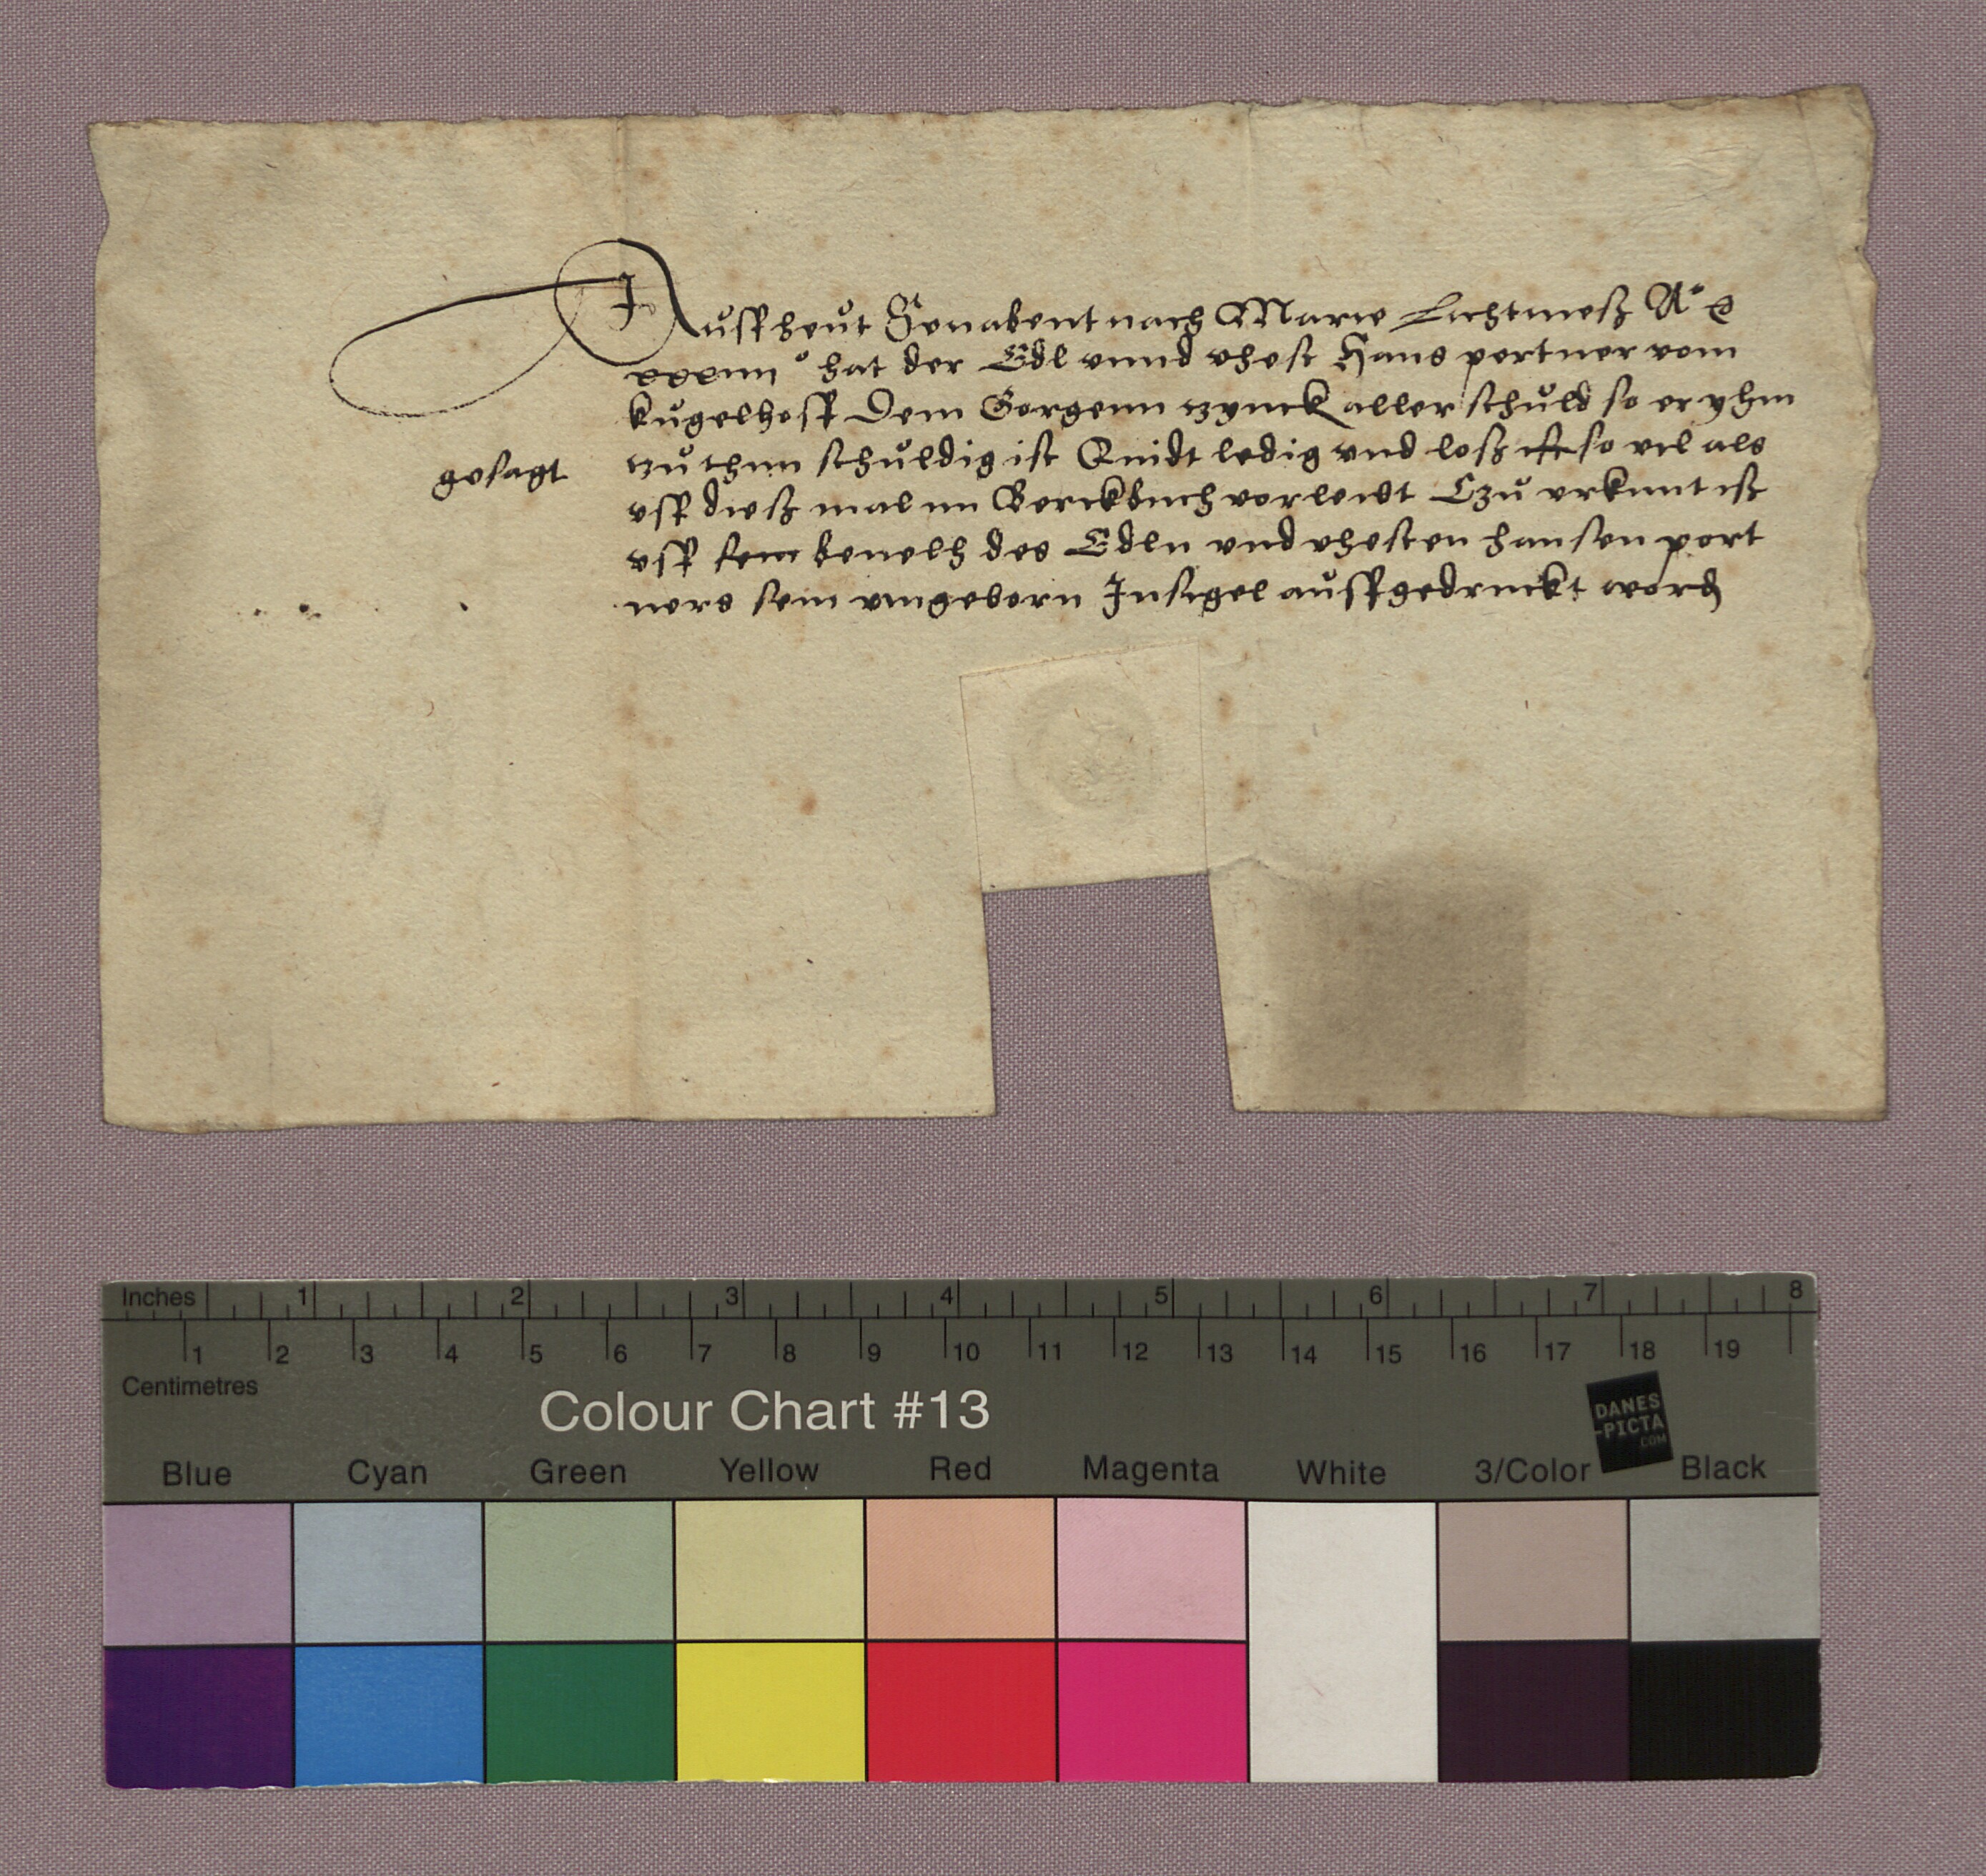 Auff heut Sonabent nach Marie Lichtmeß Aº
xxxiiii º hat der Edl vnnd vhest Hans portner vom
kugelhoff Dem Gorgenn czynck aller schuld so er yhm
gesagt
czu thun schuldig ist Quidt ledig vnd loß ist so vil als
vff dieß mal im Berckbuch vorleibt Czu vrkunt ist
vff sein beuelh des Edln vnd vhesten hansen port
ners sein angeborn Insigel auffgedruckt word
Inches 1 2 3 4 5 6 7 8
1 2 3 4 5 6 7 8 9 10 11 12 13 14 15 16 17 18 19
Centimetres
Colour Chart #13
DANES
-PICTA
.COM
Blue Cyan Green Yellow Red Magenta White 3/Color Black